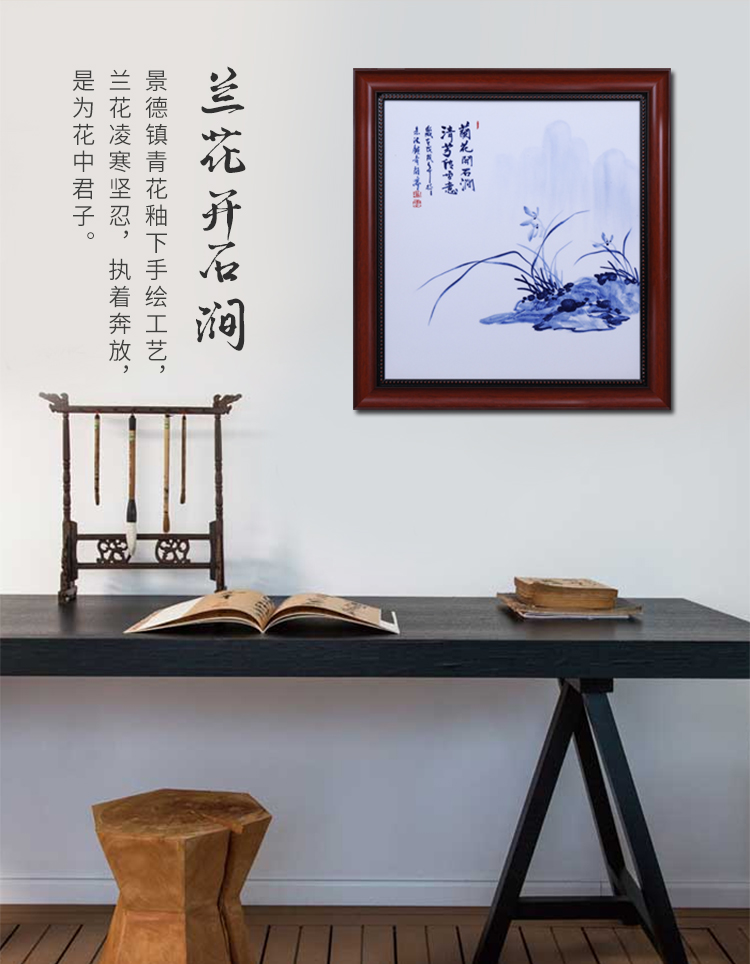 兰花开石涧
景德镇青花釉下手绘工艺，
兰花凌寒坚忍，执着奔放，
是为花中君子。
蘭花開石澗
清芳